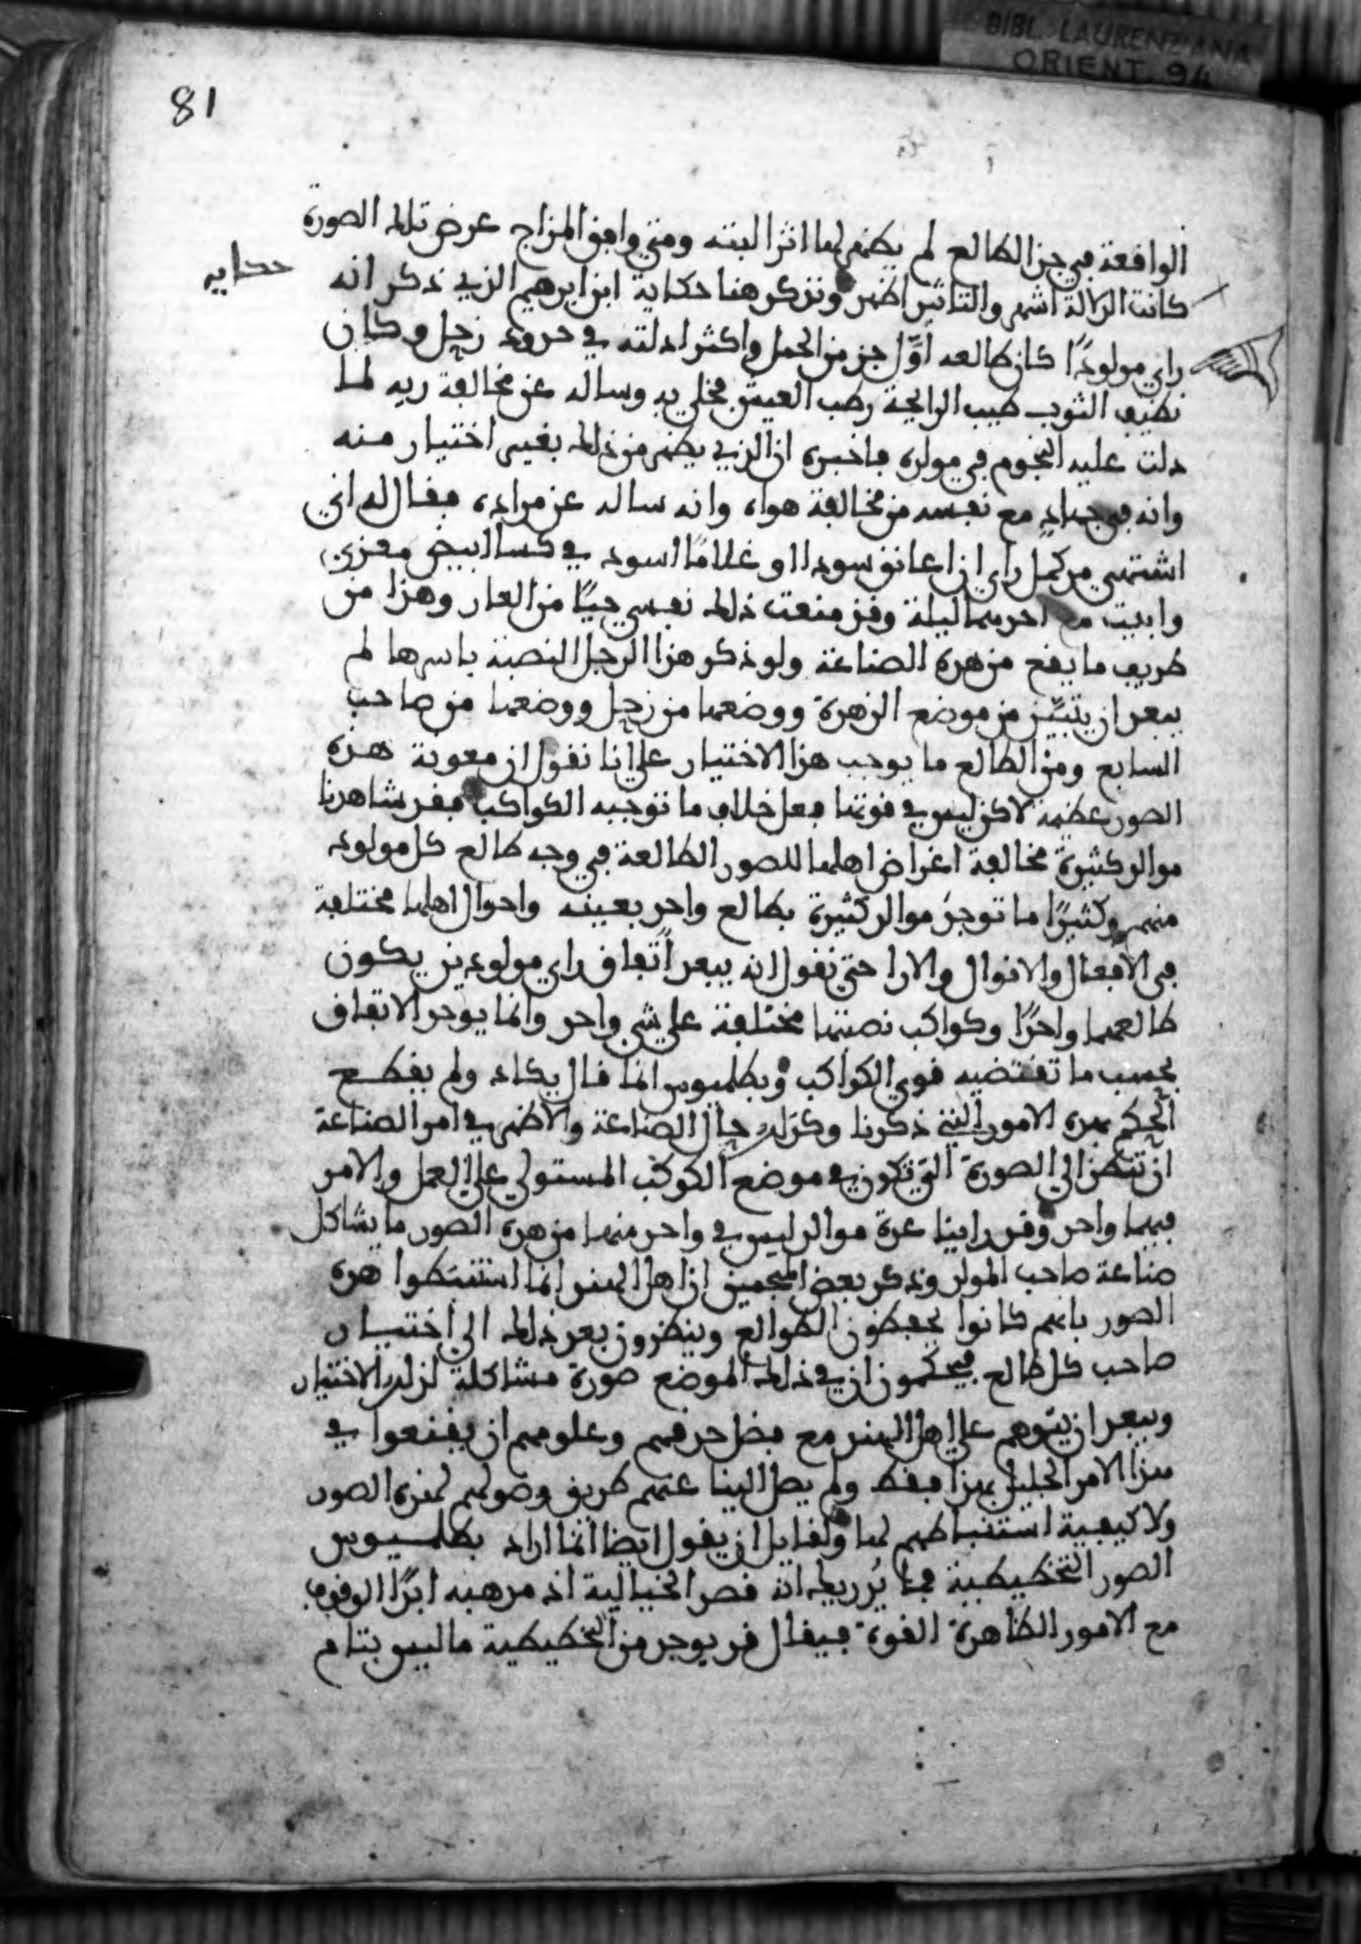 BIBL. LAURENZIANA
ORIENT. 94
81
الواقعة في جز الطالع لم يظهر لها اثرا البته ومتي وافق المزاج عرض تلك الصورة
كانت الدلالة اشهر والتاثير اظهر ونذكر هنا حكاية ابن ابرهيم الذي ذكر انه
حكايه
راي مولودًا كان طالعه اوّل جز من الحمل واكثر ادلته في حدود زحل وكان
نظيف الثوب طيب الرايحة رطب العيش فخلي به وساله عن مخالفة ريه لما
دلت عليه النجوم في مولده فاخبره ان الذي يظهر من ذلك بغير اختيار منه
وانه في جهاد مع نفسه من مخالفة هواه وانه ساله عن مراده فقال له اني
اشتهي من كل راي ان اعانق سودا او غلامًا اسود في كسا ابيض معزي
وابيت مع احدهما ليلة وقد منعت ذلك نفسي حيًا من العار وهذا من
طريف ما يقع من هذه الصناعة ولو ذكر هذا الرجل النصبة باسرها لم
يبعد ان يتبيّن من موضع الزهرة ووضعها من زحل ووضعها من صاحب
السابع ومن الطالع ما يوجب هذا الاختيار علي انا نقول ان معونة هذه
الصور عظيمة لاكن ليس في قوتها فعل خلاف ما توجبه الكواكب فقد شاهدنا
موالد كثيرة مخالفة اغراض اهلها للصور الطالعة في وجه طالع كل مولود
منهم وكثيرًا ما توجد موالد كثيرة بطالع واحد بعينه واحوال اهلها مختلفة
في الافعال والاقوال والارا حتي نقول انه يبعد اتفاق راي مولودين يكون
طالعهما واحدًا وكواكب نصبتهما مختلفة علي شي واحد وانما يوجد الاتفاق
بحسب ما تقتضيه قوي الكواكب وبطلميوس انما قال يكاد ولم يقطع
الحكم بهذه الامور التي ذكرنا وكذلك حال الصناعة والاظهر في امر الصناعة
ان تنظر الي الصورة التي تكون في موضع الكوكب المستولي علي العمل والامر
فيهما واحد وقد راينا عدة موالد ليس في واحد منها من هذه الصور ما يشاكل
صناعة صاحب المولد وذكر بعض المنجمين ان اهل الهند انما استنبطوا هذه
الصور بانهم كانوا يحفظون الطوالع وينظرون بعد ذلك الي اختيار
صاحب كل طالع فيحكمون ان في ذلك الموضع صورة مشاكلة لذلك الاختيار
ويبعد ان يتوهم علي اهل الهند مع فضل حذقهم وعلومهم ان يقنعوا في
هذا الامر الجليل بهذا فقط ولم يصل الينا عنهم طريق وصولهم لهذه الصور
ولا كيفية استنباطهم لها ولقايل ان يقول ايضا انما اراد بطلميوس
الصور التخطيطية فما يدريك انه قصد الخيالية اذ مذهبه ابدًا الوقوف
مع الامور الظاهرة القوة فيقال قد يوجد من التخطيطية ما ليس بتام